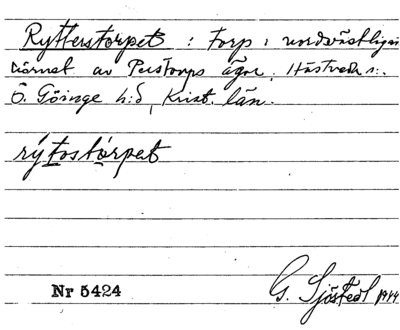 Rytterstorpet : torp i nordvästliga
hörnet av Perstorps ägor. Hästveda s:n.
Ö. Göinge h:d, Krist. län.
rýtostórpet
Nr 5424
G. Sjöstedt 1944